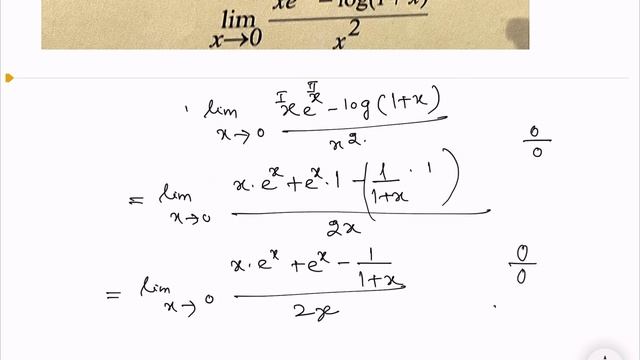 lim x→0 xeˣ − log(1 + x) / x²
lim x→0 I II xeˣ − log(1+x) / x² 0/0
= lim x→0 x·eˣ + eˣ·1 − (1/(1+x) · 1) / 2x
= lim x→0 x·eˣ + eˣ − 1/(1+x) / 2x 0/0